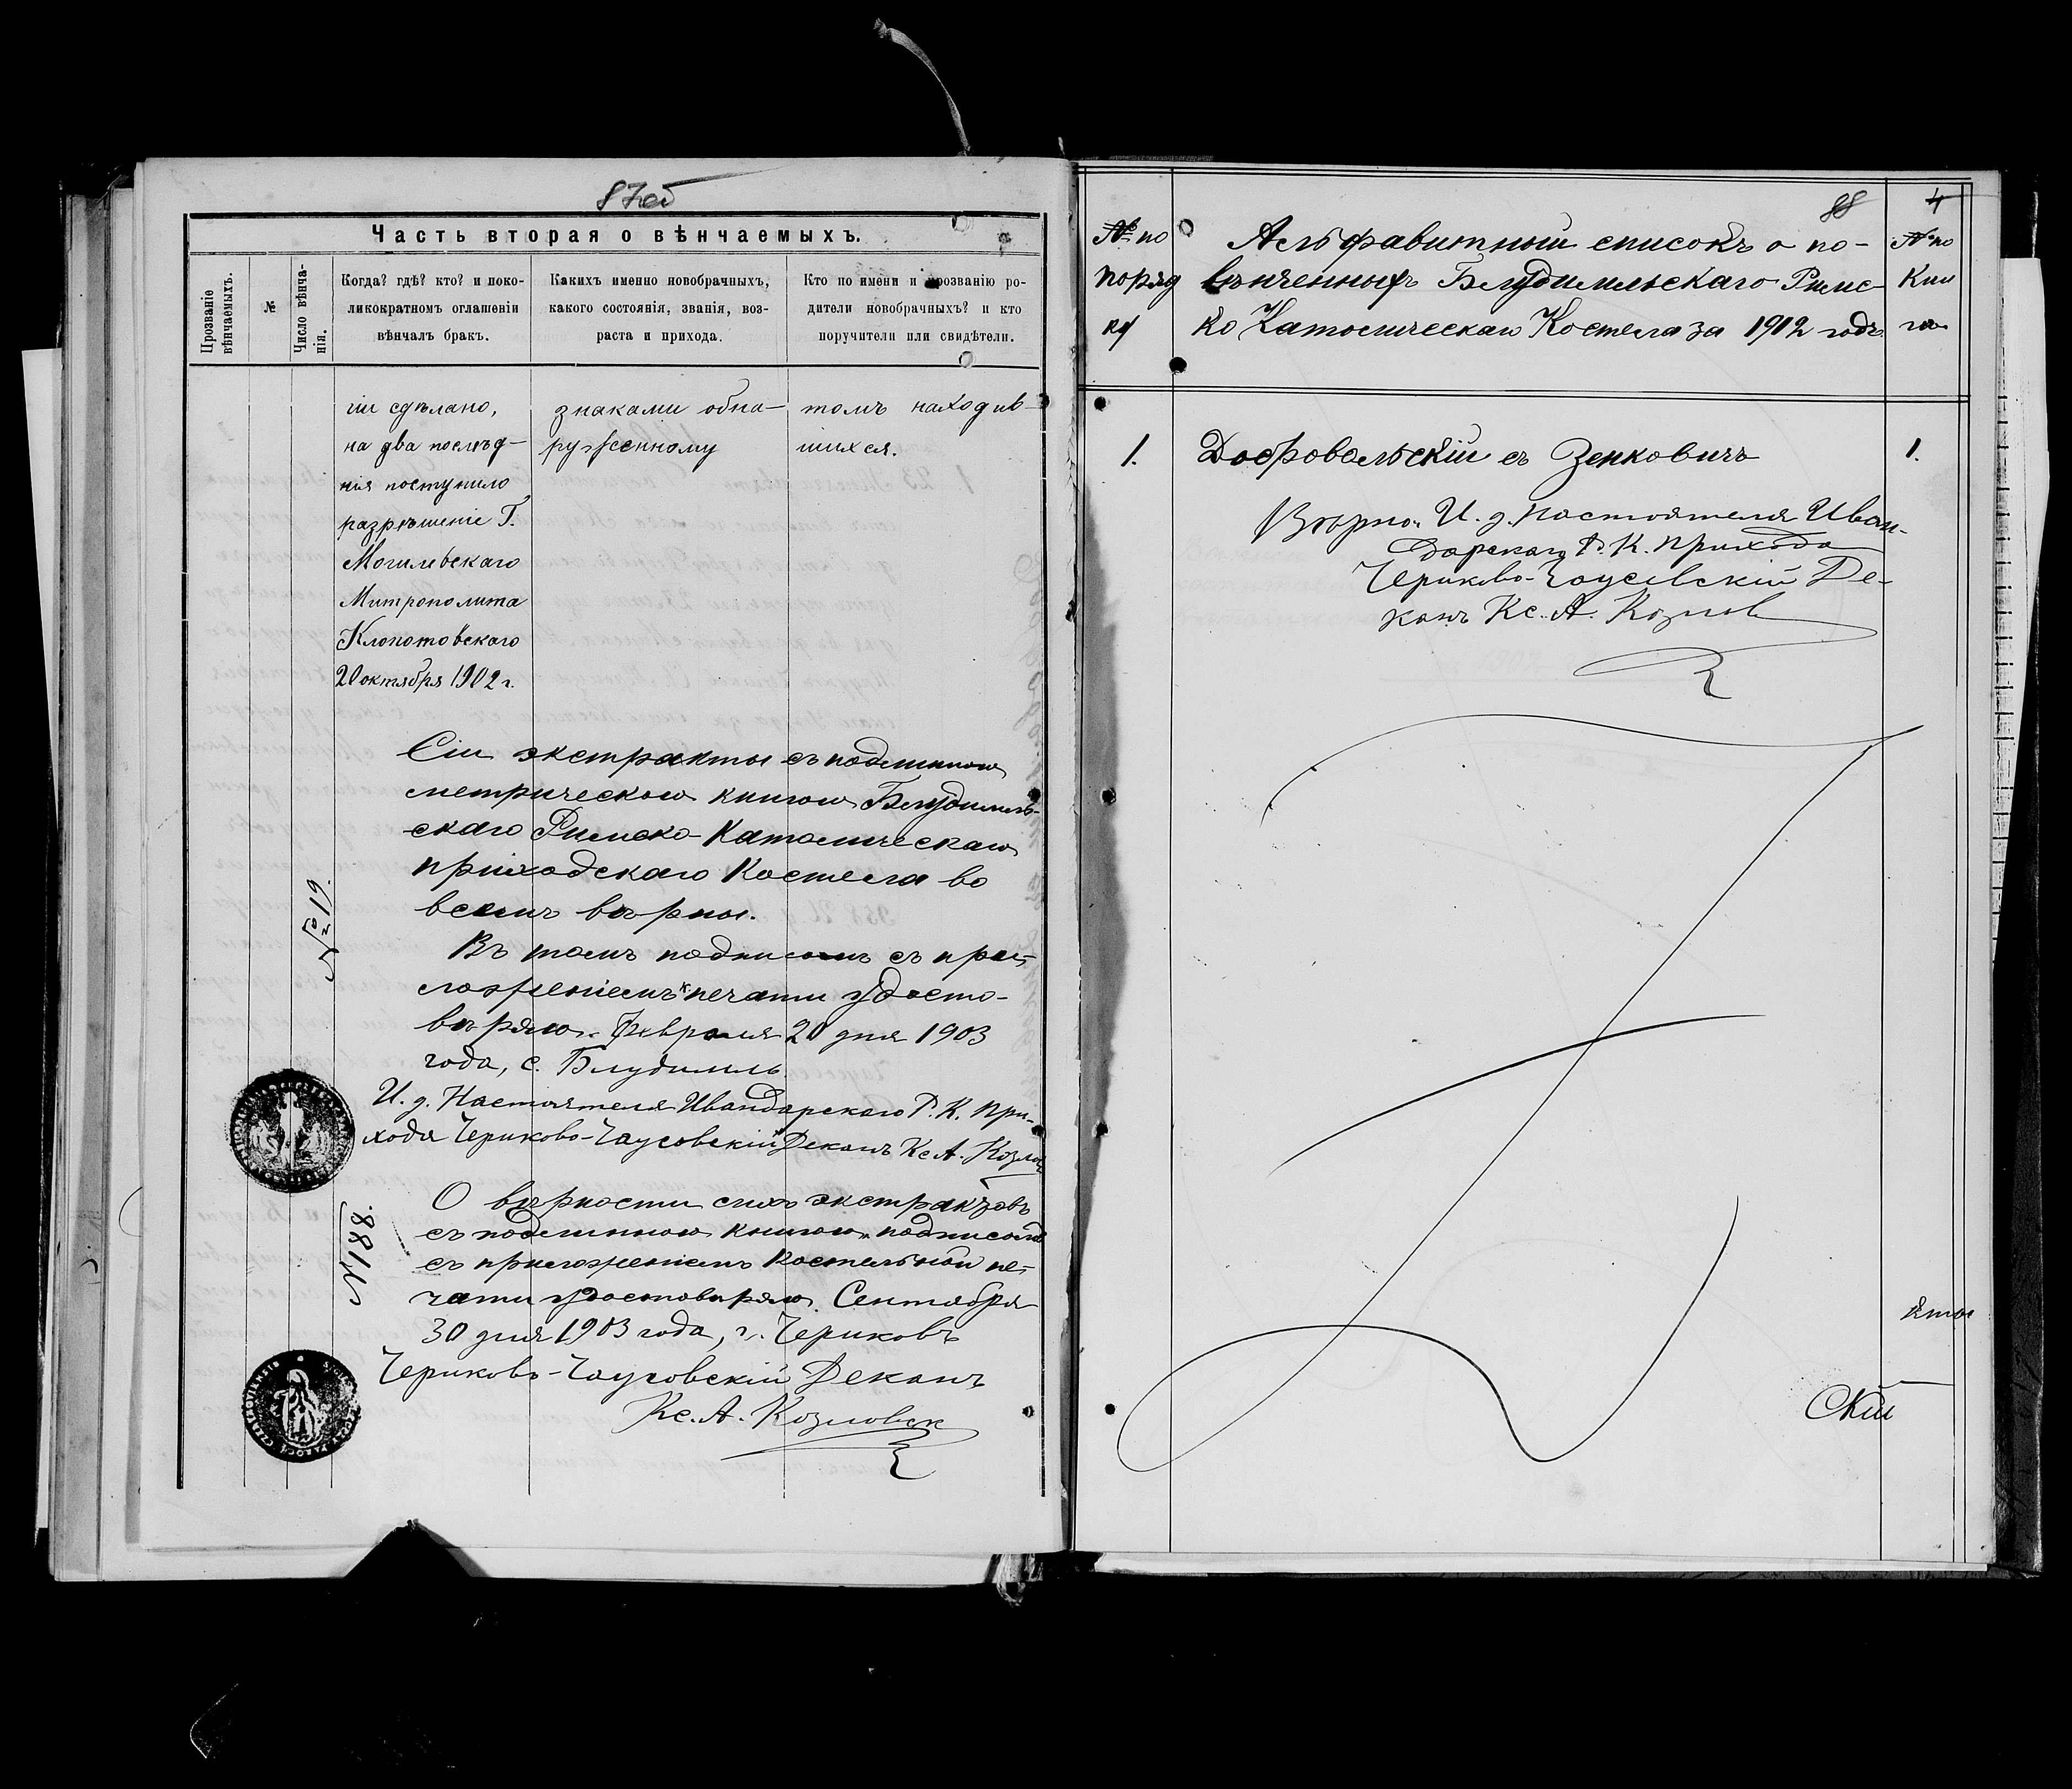 87об
Часть вторая о вѣнчаемыхъ.
Прозваніе вѣнчаемыхъ.
№
Число вѣнча-
нія.
Когда? гдѣ? кто? и поко-
ликократномъ оглашеніи
вѣнчалъ бракъ.
Какихъ именно новобрачныхъ,
какого состоянія, званія, воз-
раста и прихода.
Кто по имени и прозванію ро-
дители новобрачныхъ? и кто
поручители или свидѣтели.
ніи сдѣлано,
на два послѣд-
нія поступило
разрѣшеніе Г.
Могилевскаго
Митрополита
Клопотовскаго
20 октября 1902 г.
знаками обна-
руженному
томъ находив-
шихся.
Сіи экстракты съ подлинною
метрическою книгою Блудимль-
скаго Римско-Католическаго
приходскаго Костела во
всемъ вѣрны.
Въ томъ подписомъ съ при-
ложеніемъ печати удосто-
вѣряю. Февраля 20 дня 1903
года, с. Блудимль.
И. д. Настоятеля Ивандарскаго Р. К. При-
хода Чериково-Чаусовскій Деканъ Кс. А. Козлов
№ 19.
О вѣрности сихъ экстрактовъ
съ подлинною книгою, подписомъ
съ приложеніемъ Костельной пе-
чати удостовѣряю. Сентября
30 дня 1903 года, г. Чериковъ
Чериково-Чаусовскій Деканъ
Кс. А. Козловск
№ 188.
88
4
№ по
поряд
ку
Альфавитный списокъ о по-
вѣнченныхъ Блудимльскаго Римс-
ко Католическаго Костела за 1902 годъ.
№ по
Кни
гѣ
1.
Домбровольскій съ Зенковичъ
1.
Вѣрно: И. д. Настоятеля Иван-
дарскаго Р. К. Прихода
Чериково-Чаусовскій Де-
канъ Кс. А. Козлов
скій